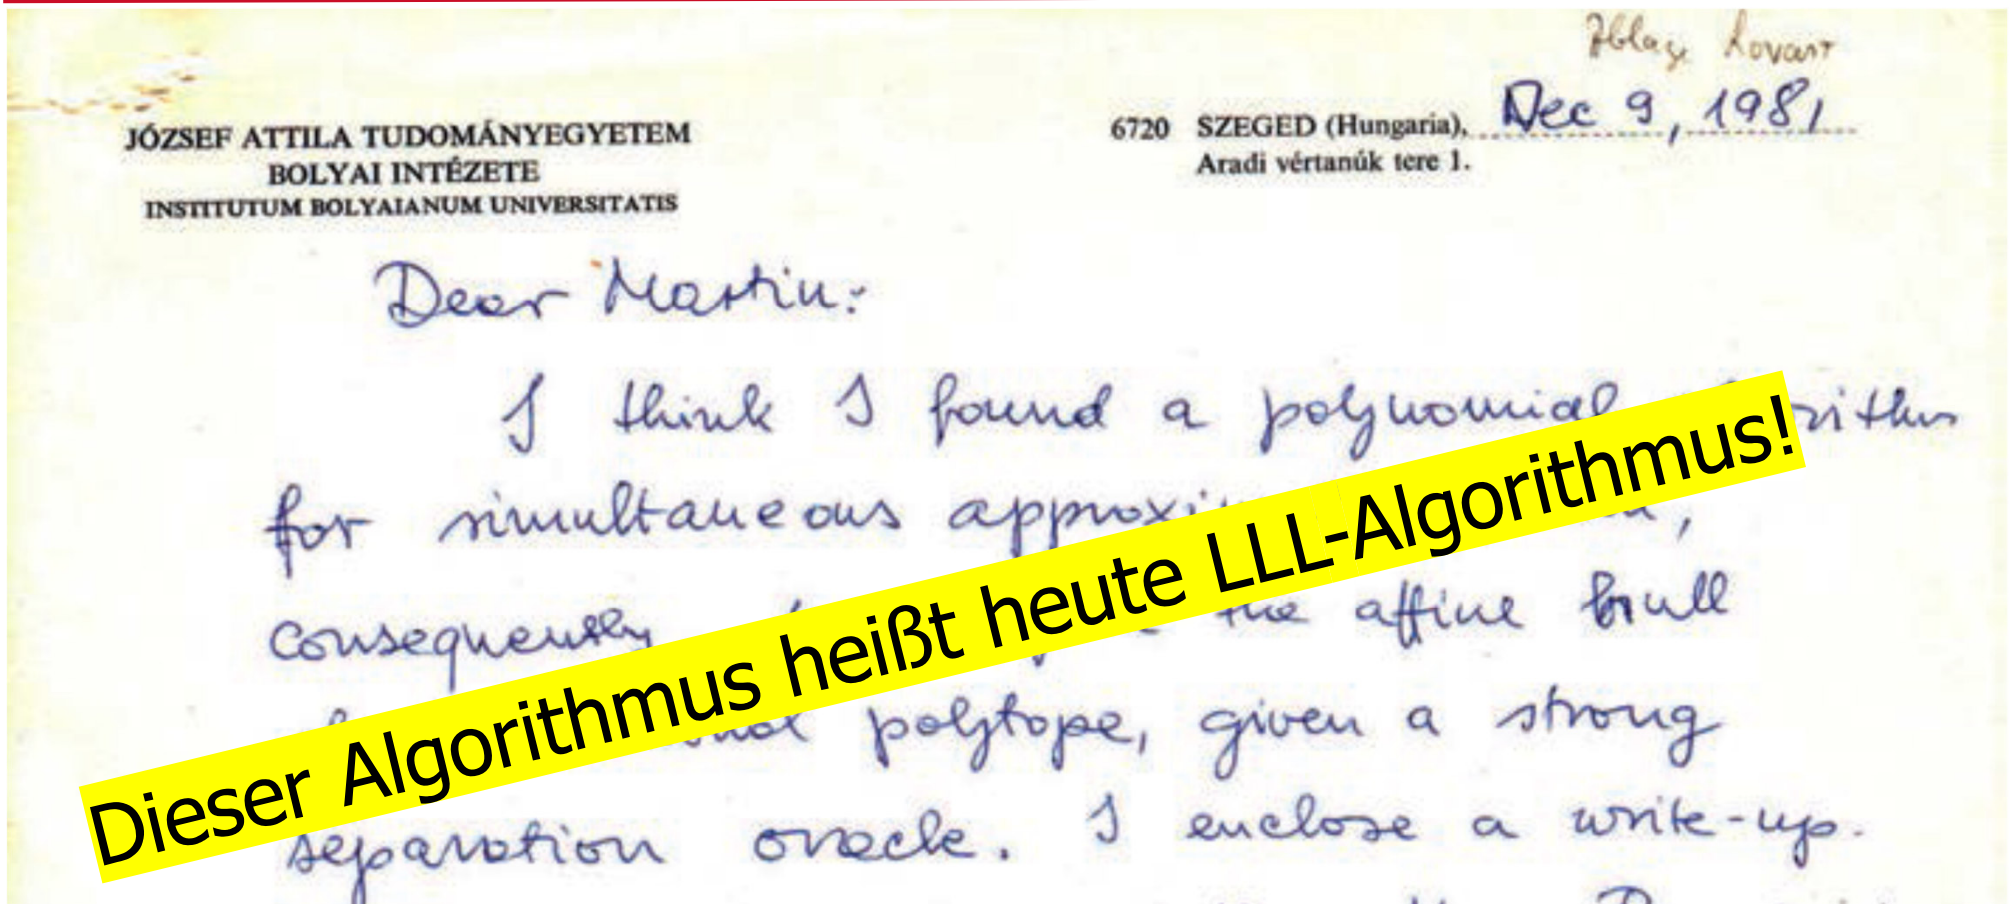 Lovász
JÓZSEF ATTILA TUDOMÁNYEGYETEM
BOLYAI INTÉZETE
INSTITUTUM BOLYAIANUM UNIVERSITATIS
6720 SZEGED (Hungaria), Dec 9, 1981
Aradi vértanúk tere 1.
Dear Martin:
I think I found a polynomial
for simultaneous
consequently the affine hull
polytope, given a strong
separation oracle. I enclose a write-up.
Dieser Algorithmus heißt heute LLL-Algorithmus!